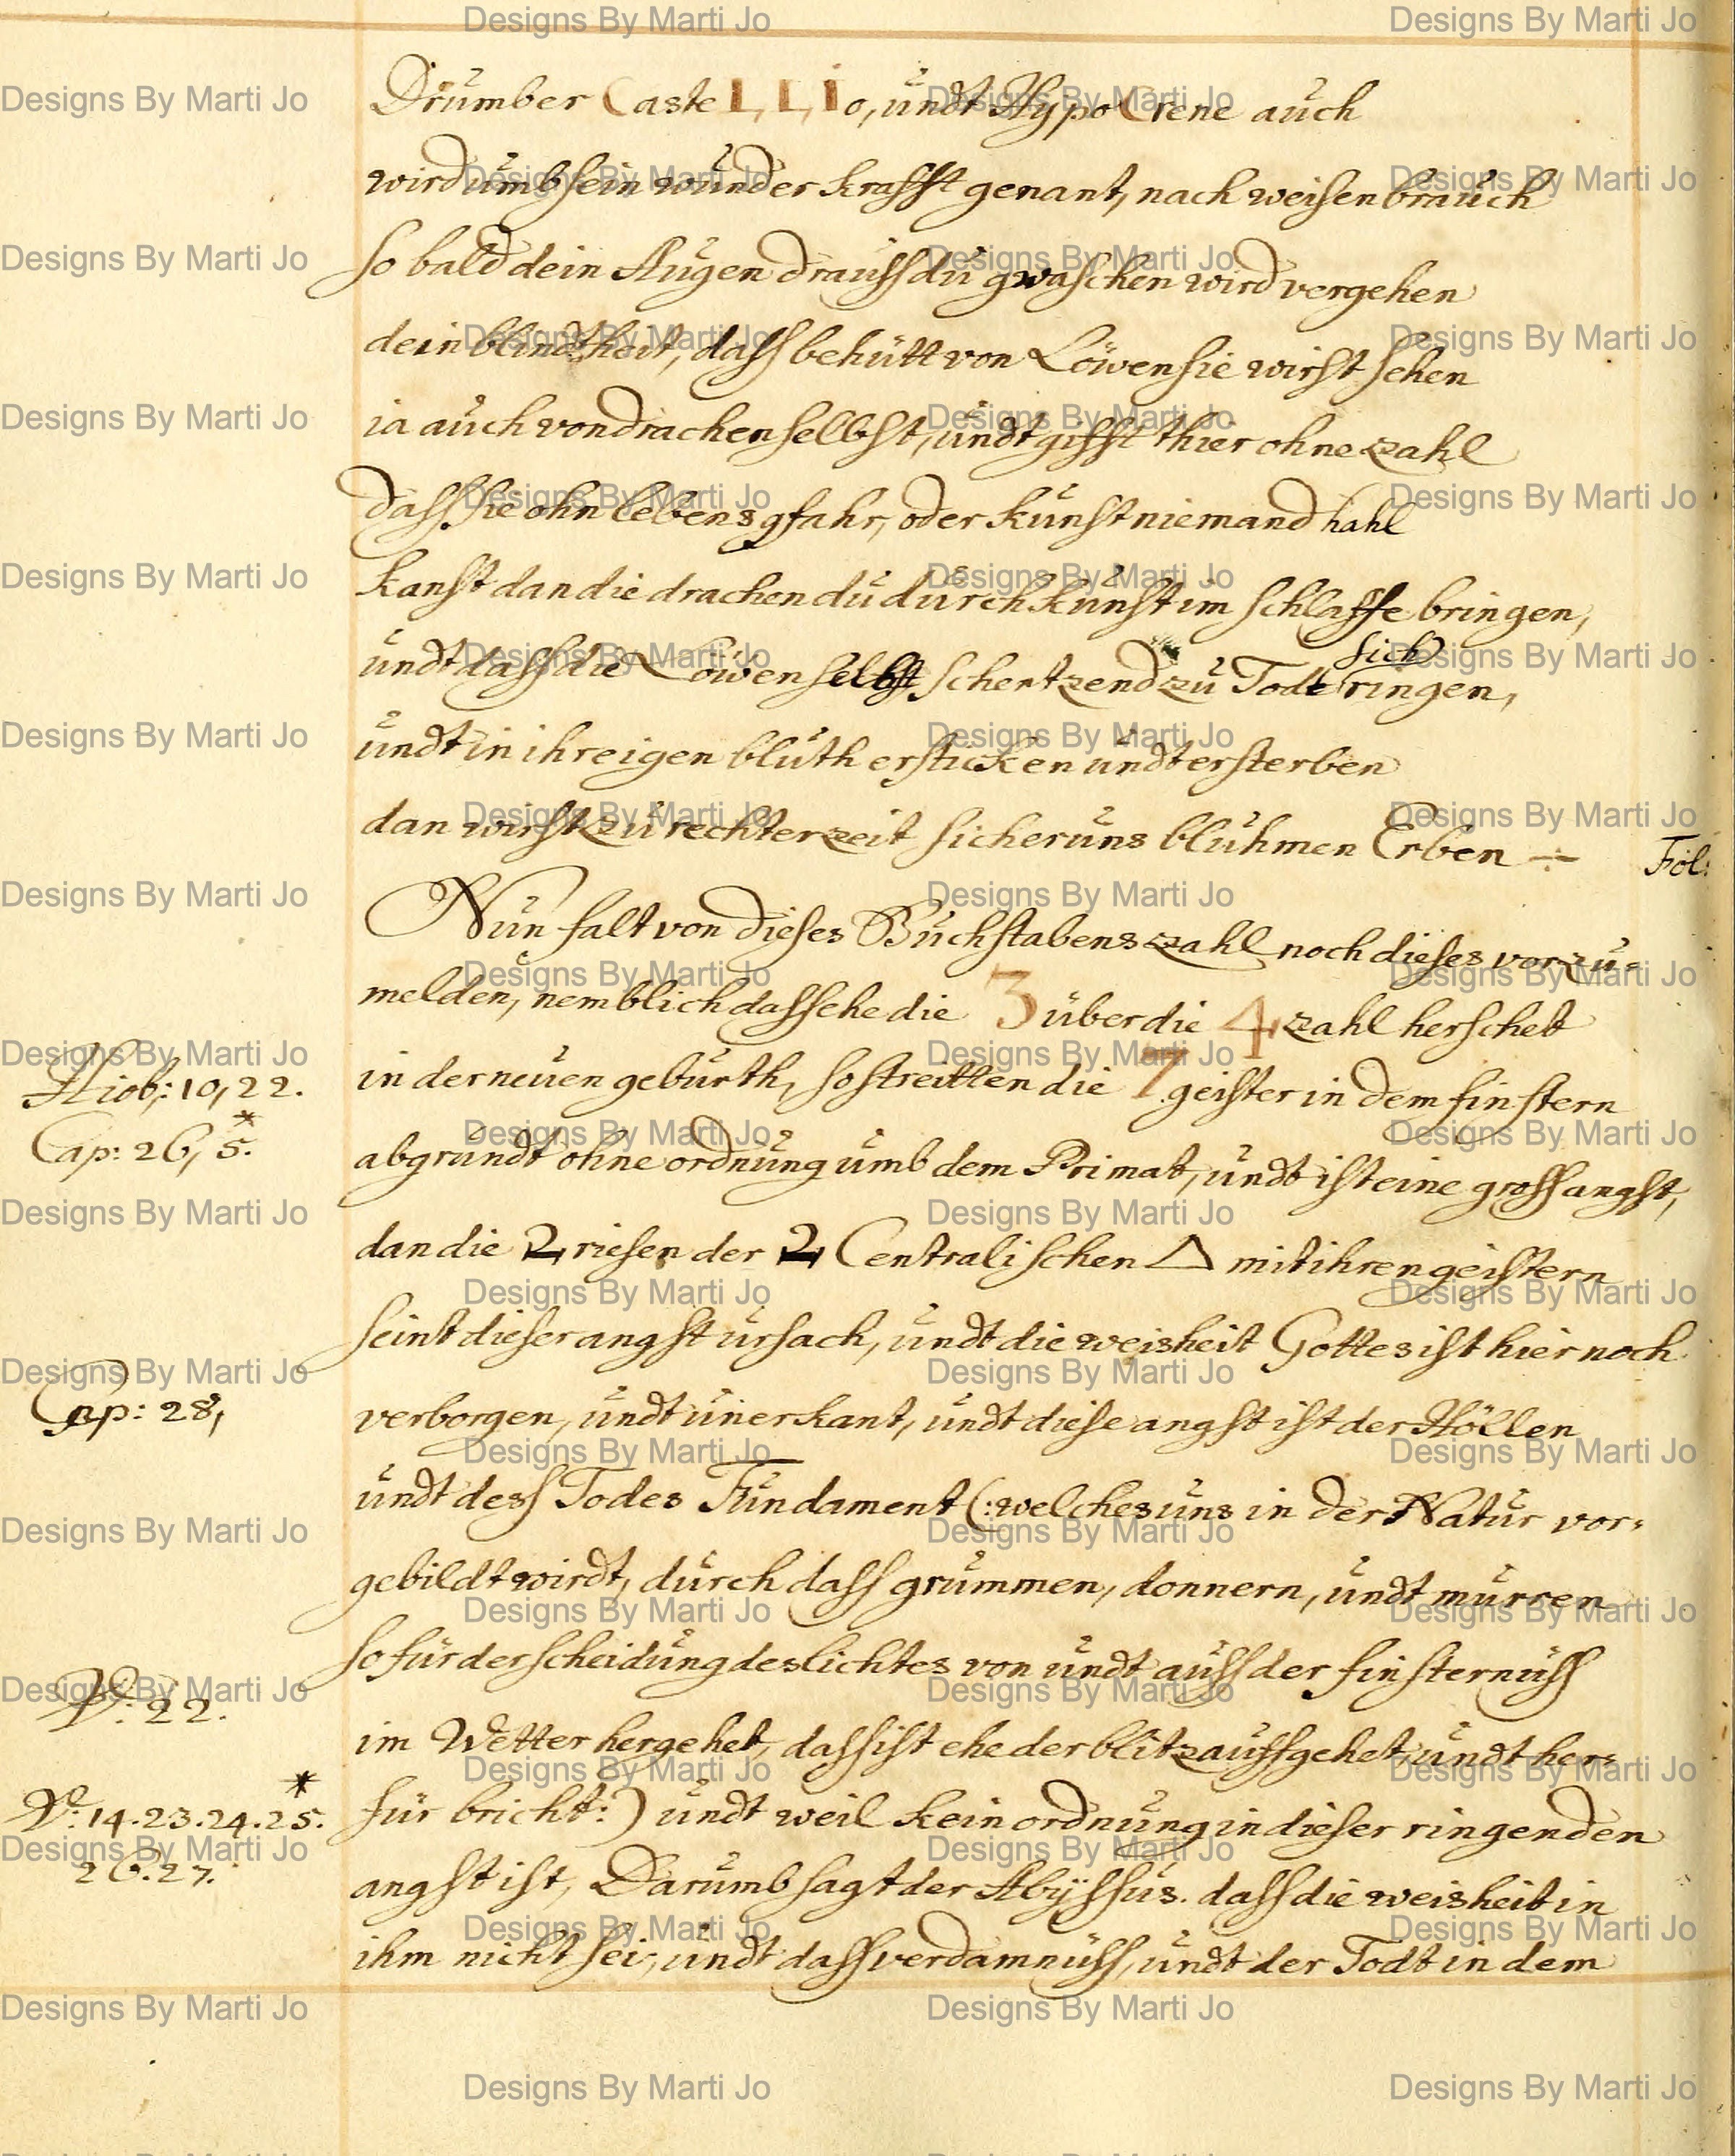 Drumber CasteLLio, undt HypoCrene auch
wird umb sein wunder krafft genant, nach weisen brauch
So bald dein Augen drauss du gwaschen wird vergehen
dein blindtheit, dass behütt von Löwen sie wirst sehen
ia auch von drachen selbst, undt gifft thier ohne zahl
dass sie ohn lebens gfahr, oder kunst niemand hahl
kanst dan die drachen du durch kunst im schlaffe bringen,
undt dass die Löwen selbst schertzend zu Todt sich ringen,
undt in ihr eigen bluth ersticken undt ersterben
dan wirst zu rechter zeit sicher uns bluhmen Erben ÷
Fol:
Nun falt von dieses Buchstabens zahl noch dieses vor zu=
melden, nemblich dass ehe die 3 über die 4 zahl herschet
Hiob: 10, 22.
in der neuen geburth, so streitten die 7 geister in dem finstern
Cap: 26, 5. *
abgrundt ohne ordnung umb dem Primat, undt ist eine gross angst,
dan die 2 riesen der 2 Centralischen △ mit ihren geistern
seint dieser angst ursach, undt die weisheit Gottes ist hier noch
Cap: 28,
verborgen, undt unerkant, undt diese angst ist der Höllen
undt dess Todes Fundament (: welches uns in der Natur vor=
gebildt wirdt, durch dass grummen, donnern, undt murren
so für der scheidung des lichtes von undt auss der finsternüss
V: 22.
im Wetter hergehet, dass ist ehe der blitz auffgehet, undt her=
V: 14. 23. 24. 25. *
26. 27.
für bricht :) undt weil kein ordnung in dieser ringenden
angst ist, Darumb sagt der Abyssus. dass die weisheit in
ihm nicht sei, undt dass verdamnüss, undt der Todt in dem
Designs By Marti Jo